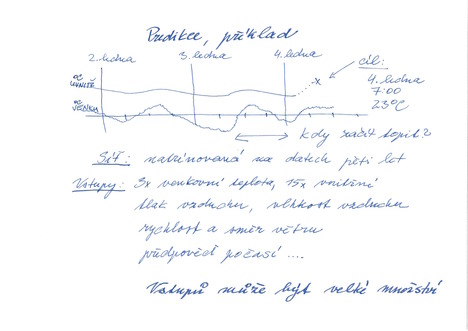 Predikce, příklad
2. ledna 3. ledna 4. ledna
°C UVNITŘ
°C VENKU
cíl:
4. ledna
7:00
23°C
kdy začít topit?
Síť: natrénovaná na datech pěti let
Vstupy: 3x venkovní teplota, 15x vnitřní
tlak vzduchu, vlhkost vzduchu
rychlost a směr větru
předpověď počasí ....
Vstupů může být velké množství